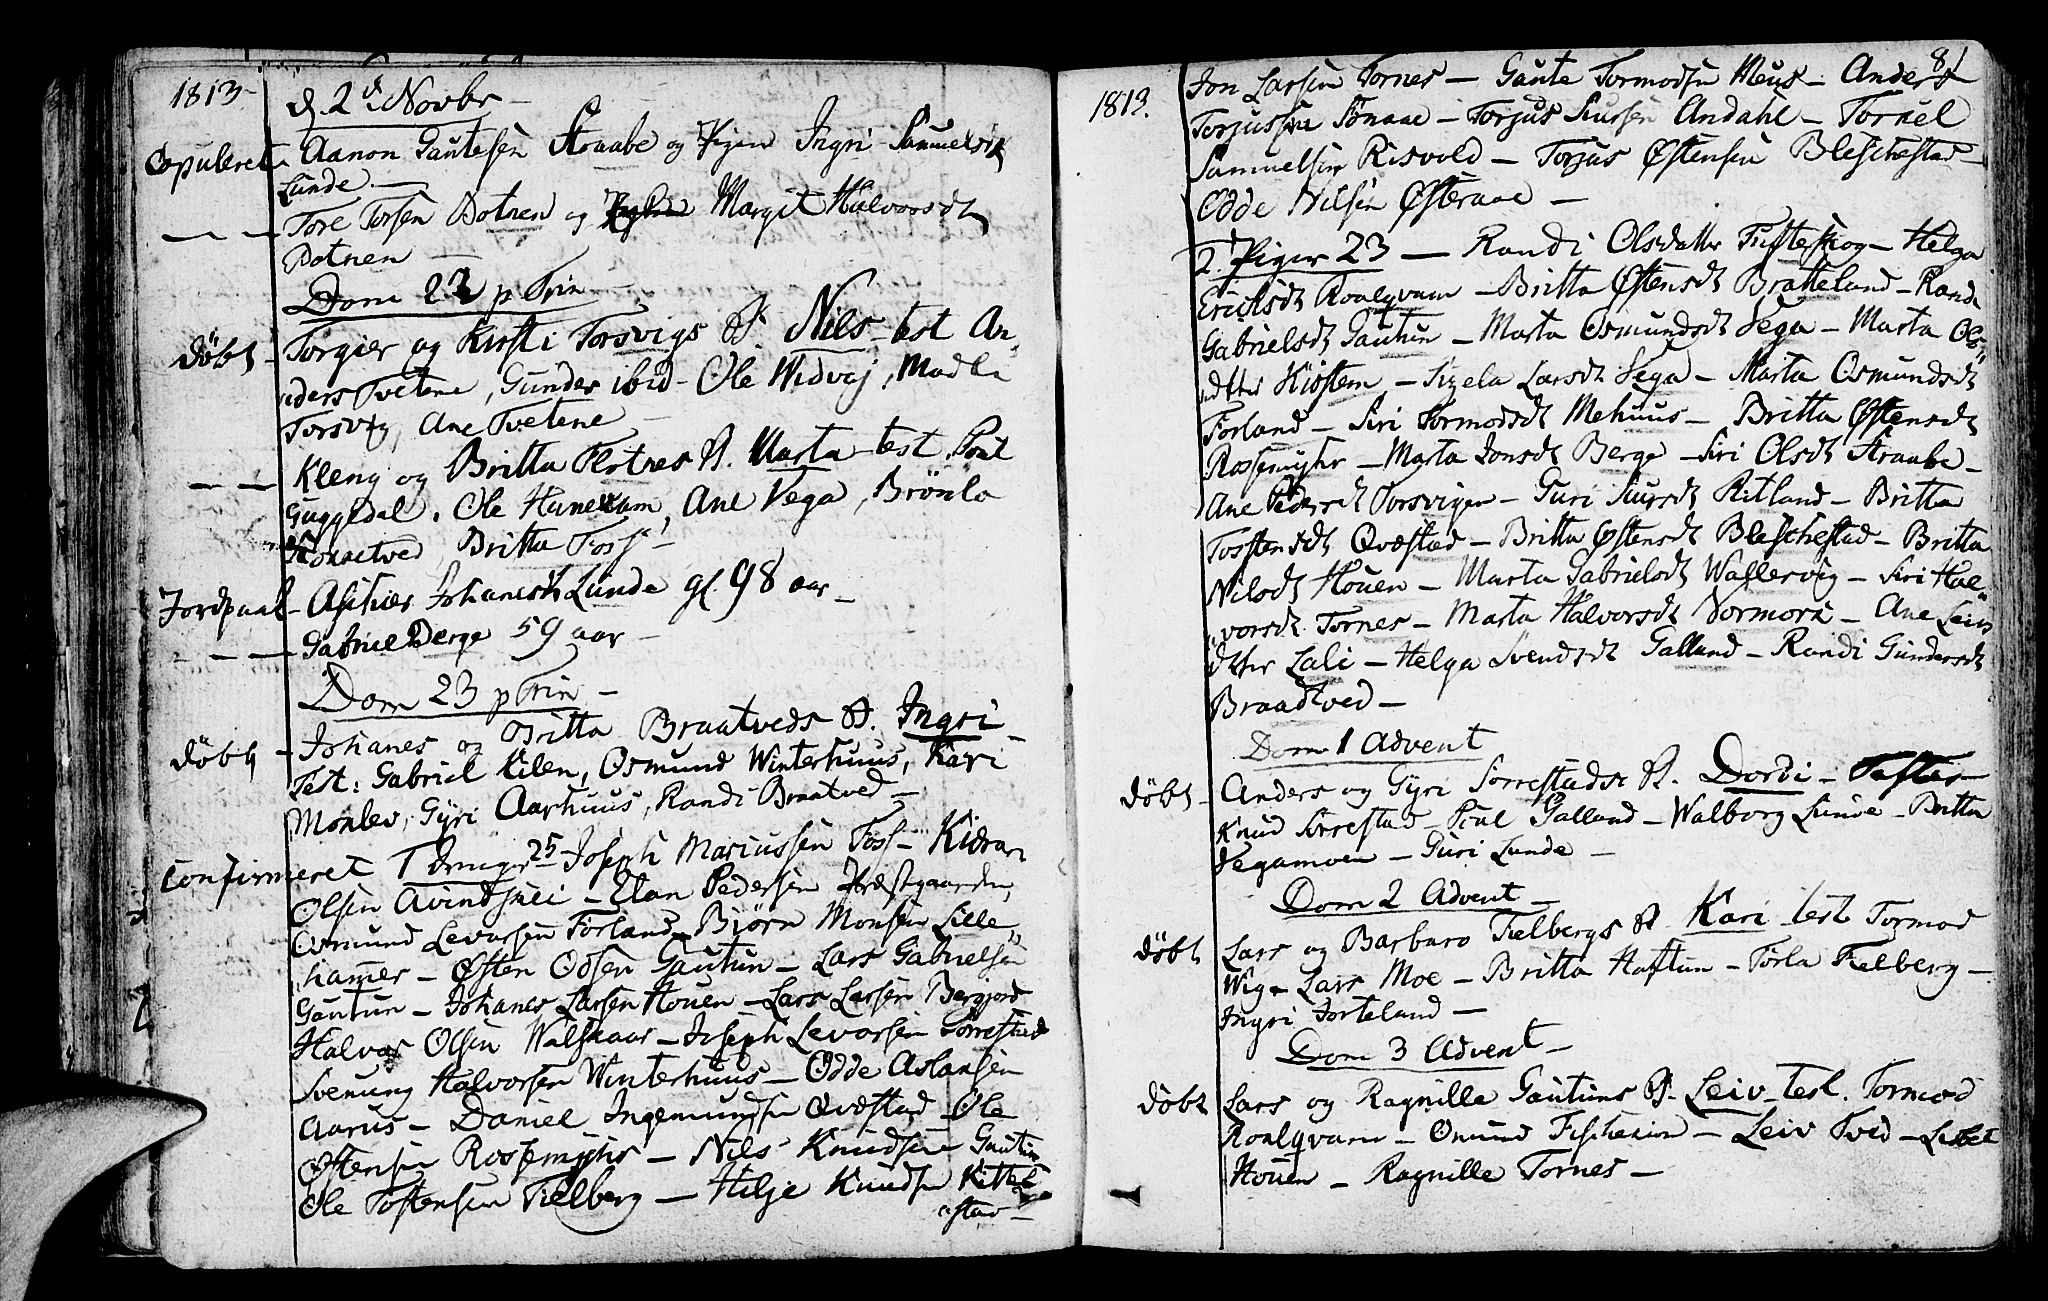 1813-
d. 2d Novbr -
Copuleret Aanon Gautesen Straabe og Pigen Ingri Samuelsdt
Lunde. -
- - - Tore Torsen Botnen og Margit Halvorsdt
Botnen -
Dom 22 p Trin -
døbt - Torgier og Kirsti Torsvigs B. Nils - test An-
ders Tvetene, Gunder ibid - Ole Widvaj, Madle
Torsvig, Ane Tvetene -
- - - Kleng og Britta Flotnes B. Marta - test Poul
Guggedal. Ole Hunekam, Ane Vega, Brönla
Honsetved, Britta Foss -
Jordpaak - Johanesdt Lunde gl. 98 aar -
- - - Gabriel Berge 59 aar -
Dom 23 p Trin -
døbt - Johanes og Britta Braatveds B. Ingri -
Test: Gabriel Kilen, Osmund Winterhuus, Kari
Monlev, Gyri Aarhuus, Randi Braatved -
Confirmeret 1 Drenger 25 - Joseph Mariussen Foss -
Olsen - Elan Pedersen Præstgaarden,
Osmund Levorsen Forland - Biörn Monsen Lille-
hamer - Østen Odsen Gautun - Lars Gabrielsen
Gautun - Johanes Larsen Houen - Lars Larsen Bergjord
Halvor Olsen Walskaar - Joseph Levorsen Sorrestad
Svenung Halvorsen Winterhuus - Odde Aslansen
Aarus - Daniel Ingemundsen Qvæstad - Ole
Østensen Rossemyhr - Nils Knudsen Gautun
Ole Tostensen Fielberg - Hilje Knudsen Kittel-
stav -
81
1813.
Jon Larsen Tornes - Gaute Tormodsen Meus - Anders
Torjussen Tönaae - Torjus Siursen Andahl - Torkel
Samuelsen Risvold - Torjus Østensen Bleschestad -
Odde Nilsen Østeraae -
2. Piger 23 - Randi Olsdatter Tufteskog - Helga
Ericksdt Roalqvam - Britta Østensdt Bratteland - Rande
Gabrielsdt Gautun - Marta Osmundsdt Vega - Marta Ols-
dtter Hiostem - Sizela Larsdt Vega - Marta Osmundsdt
Forland - Siri Tormodsdt Mehuus - Britta Østensdt
Rossemyhr - Marta Jonsdt Berge - Siri Olsdt Straabe -
Ane Pedersdt Torsvigen - Guri Siursdt Ritland - Britta
Tostensdt Qvæstad - Britta Østensdt Bleschestad - Britta
Nilsdt Houen - Marta Gabrielsdt Wallervig - Siri Hal-
vorsdt Tornes - Marta Halvorsdt Normork - Ane Leivs
dtter Lali - Helga Svendsdt Galland - Randi Gundersdt
Braadtved -
Dom 1 Advent
døbt - Anders og Gyri Sorrestads B. Dordi - Tester
Knud Sorrestad - Poul Galland - Walborg Lunde - Britta
Vegamoen - Guri Lunde -
Dom 2 Advent -
døbt Lars og Barbaro Fielbergs B. Kari test Tormod
Wig - Lars Moe - Britta Haftun - Torla Fielberg -
Ingri Jorteland -
Dom 3 Advent -
døbt Lars og Ragnille Gautuns B. Leiv - test. Tormod
Roalqvam - Omund - Leiv Tved - Lisbet
Houen - Ragnille Tornes -